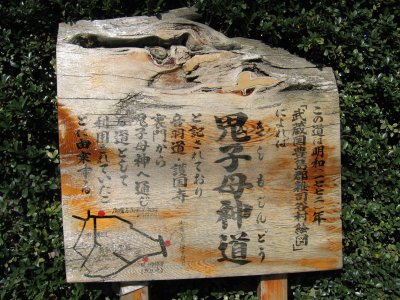 この道は明和一七七二年
「武蔵国豊島郡雑司ケ谷村絵図」
によれば
きしもじんどう
鬼子母神道
と記されており
音羽道・護国寺
裏門から
鬼子母神へ通じ
る道として
利用されていたこ
とに由来する